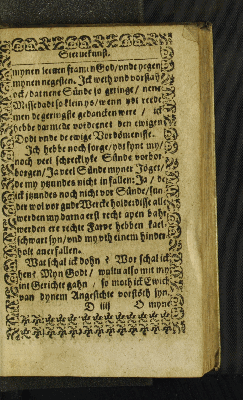 Steruekunst.
mynen leeuen framen God/ vnde yegen
mynen negesten. Ick weth vnd vorstah
ock/ dat nene Sünde so geringe/ nene
Missedadt so kleyn ys/ wenn ydt vordt
men de geringste gedancken were / ick
hebbe darmede vordenet den ewigen
Dodt vnde de ewige Vordömenisse.
Ick hebbe noch sorge/ ydt syne my/
noch veel schrecklyke Sünde vorbor
borgen/ Ja veel Sünde myner Jöget/
de my ytzundes nicht in fallen: Ja / de
ick jtzundes noch nicht vor Sünde/ sun
der wol vor gude Wercke holde: disse alle
werden my darna erst recht apen bahr
werden ere rechte Farve hebben kael-
schwart syn/ vnd my vth einem hinder
holt anerfallen.
Wat schal ick dohn? Wor schal ick
hen? Myn Godt/ wultu also mit my
int Gerichte gahn / so moth ick Ewich
van dynem Angesichte vorstöth syn.
D iiij
O myne